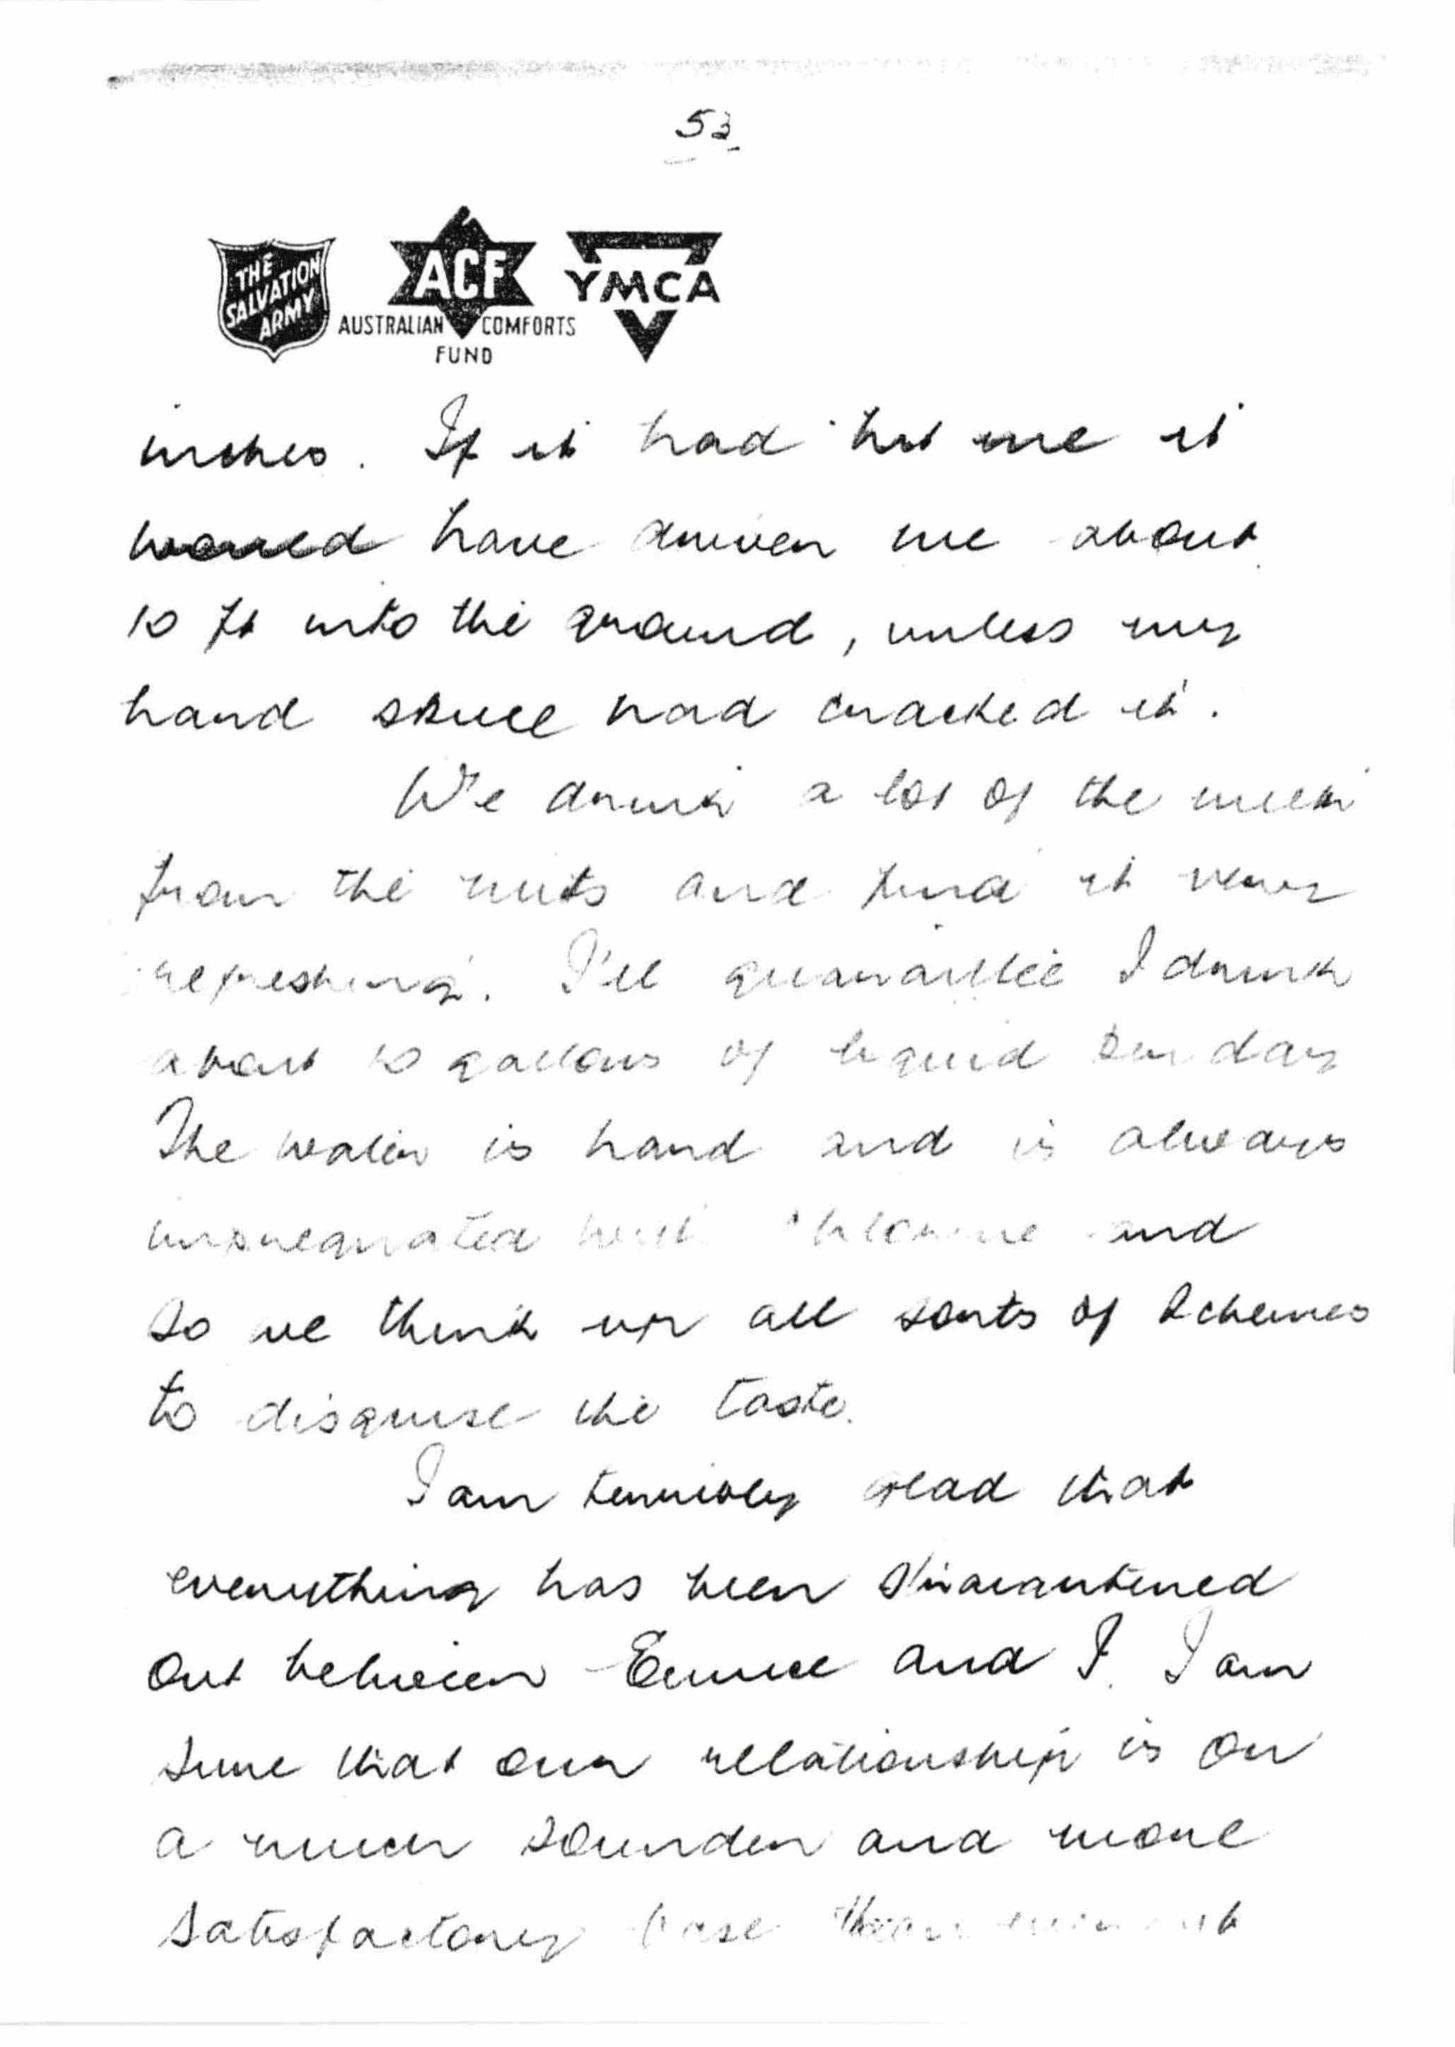 53.
THE
SALVATION
ARMY
ACF
AUSTRALIAN COMFORTS
FUND
YMCA
inches. If it had hit me it
would have driven me about
10 ft into the ground, unless my
hard skull had cracked it.
We drink a lot of the milk
from the nuts and find it very
refreshing. I'll guarantee I drink
about 10 gallons of liquid per day
The water is hard and is always
impregnated with chlorine and
so we think up all sorts of schemes
to disguise the taste.
I am terribly glad that
everything has been straightened
out between and I. I am
sure that our relationship is on
a much sounder and more
satisfactory base than